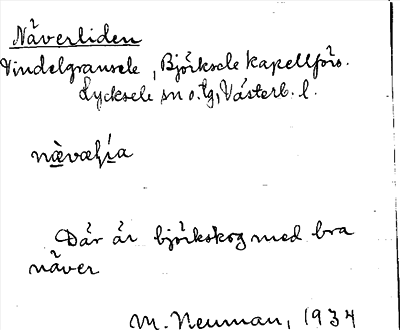 Näverliden
Vindelgransele, Björksele kapellförs.
Lycksele sn o. tg, Västerb. l.
Där är björkskog med bra
näver
M. Neuman, 1934